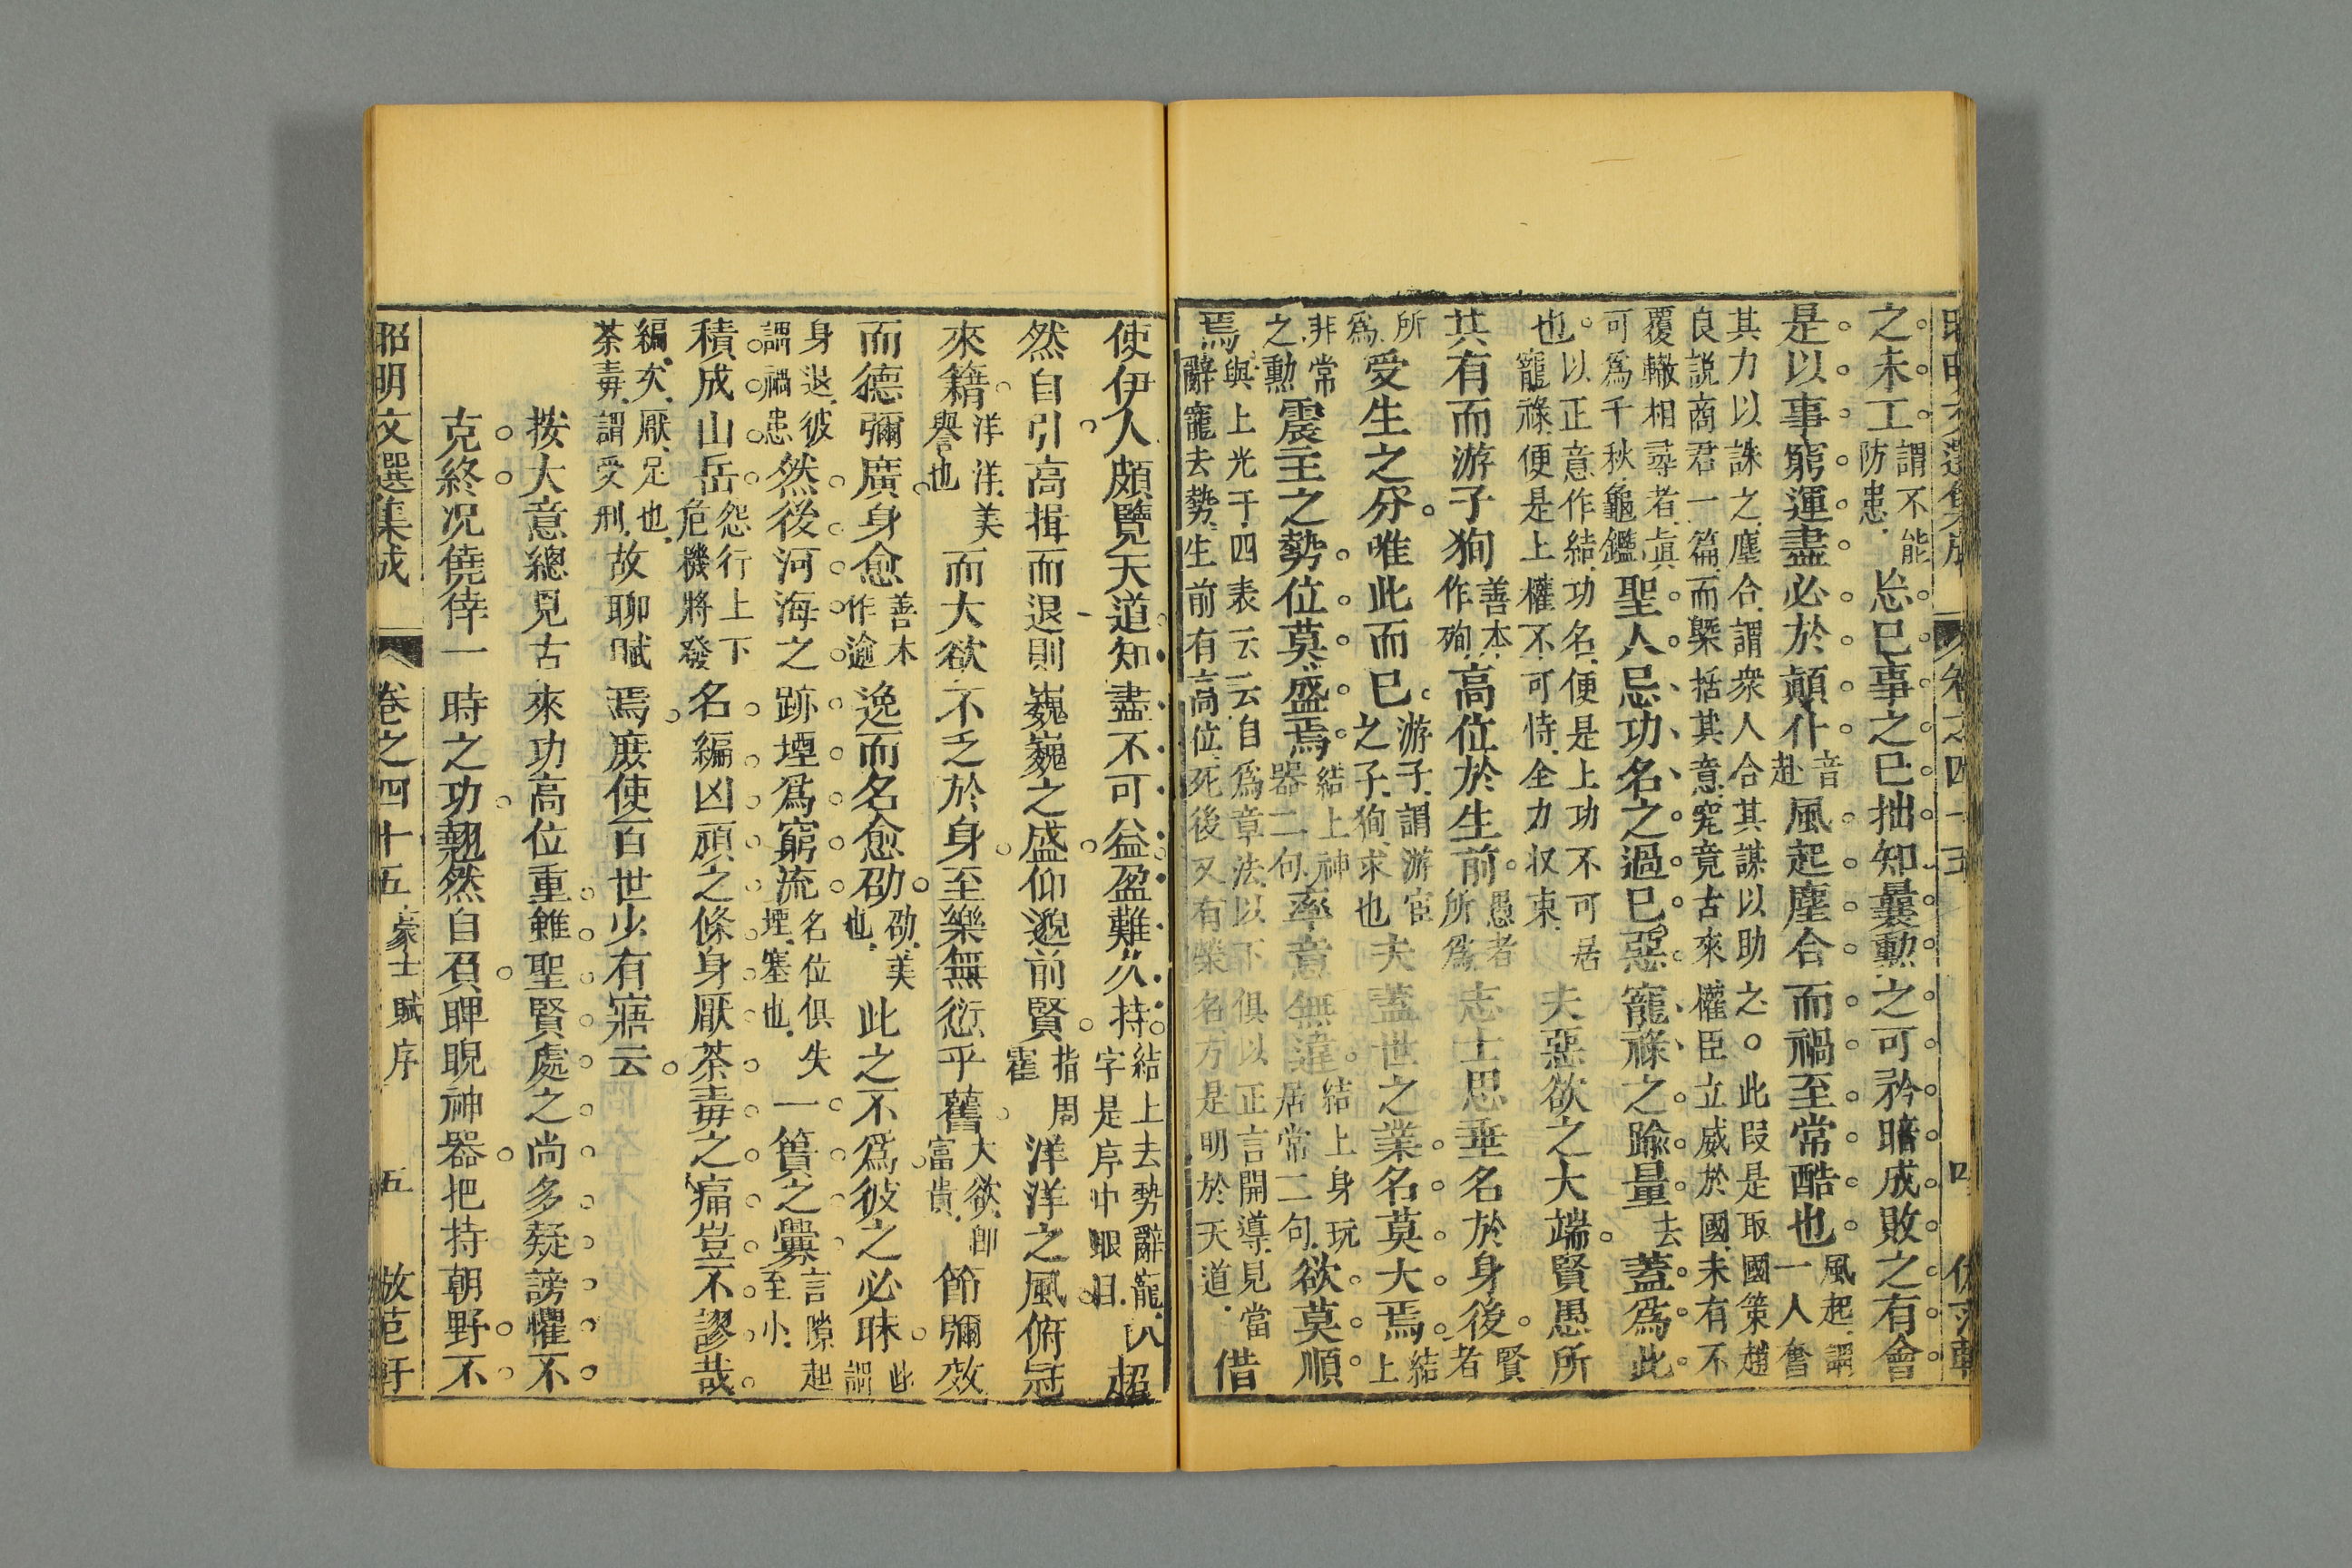 之未工謂不能防患忘巳事之巳拙知曩勳之可矜暗成敗之有會
是以事窮運盡必於顛仆音赴風起塵合而禍至常酷也風起謂一人奮
其力以誅之塵合謂眾人合其謀以助之此段是取國策趙良說商君一篇而檃括其意究竟古來權臣立威於國未有不
覆轍相尋者眞可爲千秋龜鑑聖人忌功名之過巳惡寵祿之踰量去蓋爲此
也以正意作結功名便是上功不可居寵祿便是上權不可恃全力収束夫惡欲之大端賢愚所
共有而游子狥善本作殉高位於生前愚者所爲志士思垂名於身後賢者
所爲受生之分唯此而已游子謂游宦之子狥求也夫蓋世之業名莫大焉結上
非常之勳震主之勢位莫盛焉結上神器二句率意無違結上身玩居常二句欲莫順
焉與上光于四表云云自爲章法以下俱以正言開導見當辭寵去勢生前有高位死後又有榮名方是明於天道借
使伊人頗覽天道知盡不可益盈難久持結上去勢辭寵八字是序中眼目超
然自引高揖而退則巍巍之盛仰邈前賢指周霍洋洋之風俯冠
來籍洋洋美譽也而大欲不乏於身至樂無愆乎舊大欲卽富貴節彌效
而德彌廣身愈善本作逾逸而名愈劭劭美也此之不爲彼之必昧此謂
身退彼謂禍患然後河海之跡堙爲窮流名位俱失堙塞也一簣之釁言隙起至小
積成山岳怨行上下危機將發名編凶頑之條身厭荼毒之痛豈不謬哉
編次厭足也荼毒謂受刑故聊賦焉庶使百世少有寤云
按大意總見古來功高位重雖聖賢處之尚多疑謗懼不
克終况僥倖一時之功翹然自負睥睨神器把持朝野不
昭明文選集成 卷之四十五 豪士賦序 五 倣范軒